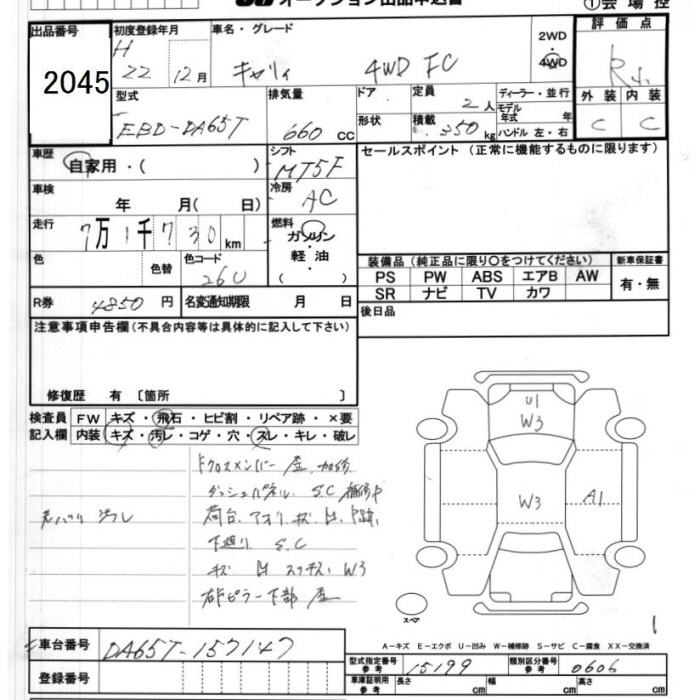 オークション出品申込書
①会場控
出品番号
2045
初度登録年月
H 22 12月
車名・グレード
キャリィ 4WD FC
2WD
・
4WD
評価点
型式
EBD-DA65T
排気量
660 cc
ドア
形状
定員
2人
積載
350kg
ディーラー・並行
モデル年式 年
ハンドル 左・右
外装 内装
C C
車歴
自家用・( )
シフト
MT5F
セールスポイント(正常に機能するものに限ります)
車検
年 月( 日)
冷房
AC
走行
7万1千730km
燃料
ガソリン
・
軽油
・
( )
色
色替
色コード
26U
装備品(純正品に限り○をつけてください)
PS PW ABS エアB AW
SR ナビ TV カワ
新車保証書
有・無
R券 4850円
名変通知期限 月 日
後日品
注意事項申告欄(不具合内容等は具体的に記入して下さい)
修復歴 有 [箇所 ]
検査員 FW キズ・飛石・ヒビ割・リペア跡・×要
記入欄 内装 キズ・汚レ・コゲ・穴・スレ・キレ・破レ
ダッシュパネル S.C 補修中
荷台、アオリ キズ
下廻り S.C
キズ W3
右ピラー下部
U1
W3
W3
A1
スペア
1
A-キズ E-エクボ U-凹み W-補修跡 S-サビ C-腐食 XX-交換済
車台番号
DA65T-157147
登録番号
型式指定番号
参考
15199
類別区分番号
参考
0606
車庫証明用
参考
長さ cm 幅 cm 高さ cm